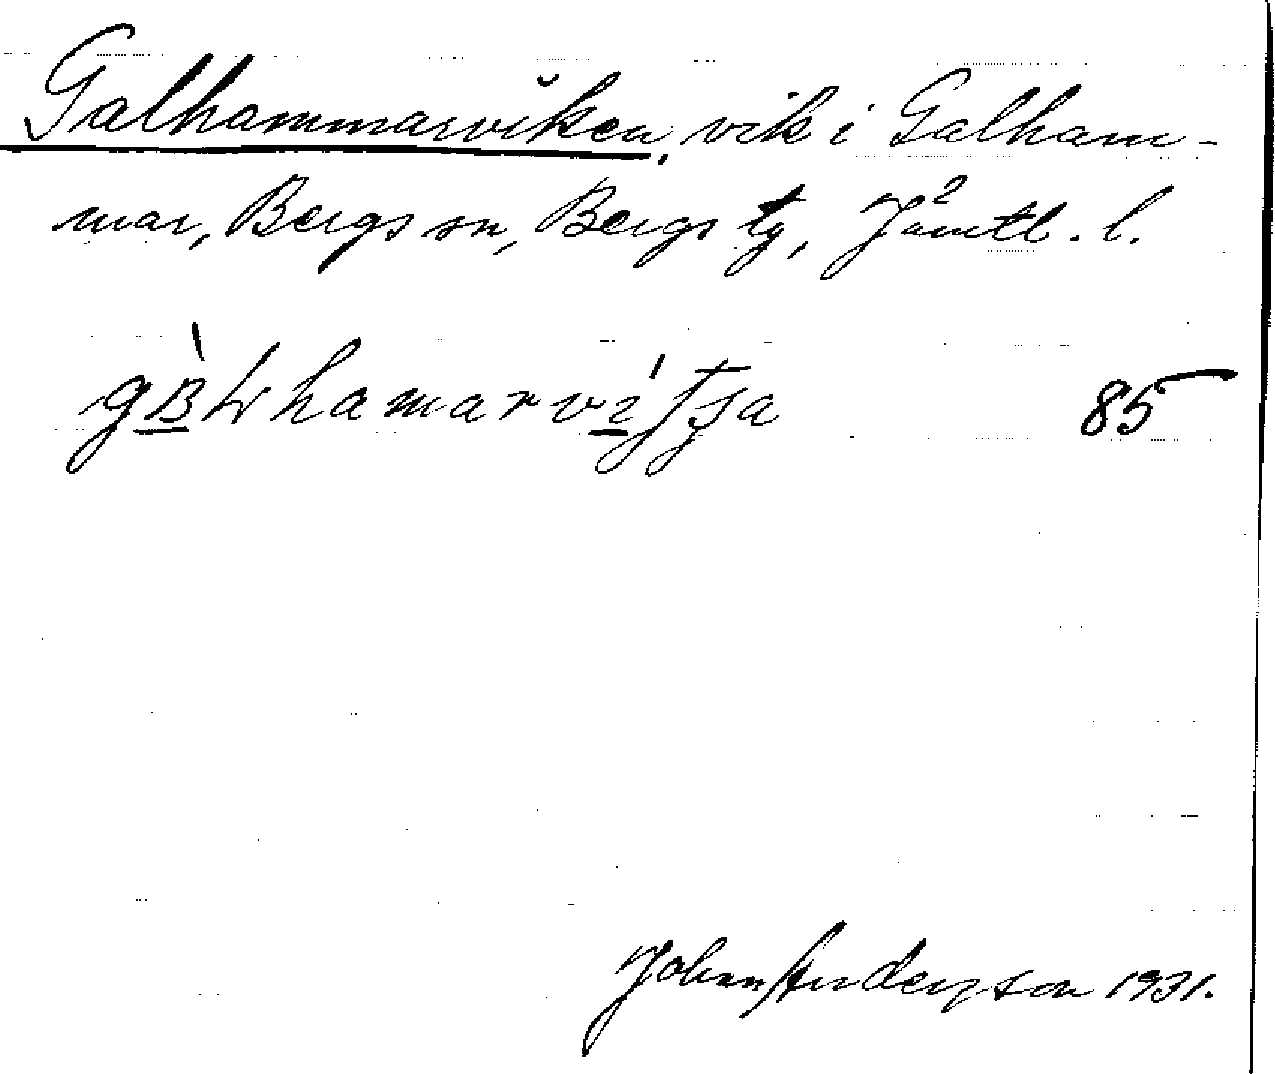 Galhammarviken, vik i Galham-
mar, Bergs sn, Bergs tg, Jämtl. l.
85
Johan Anderzson 1931.